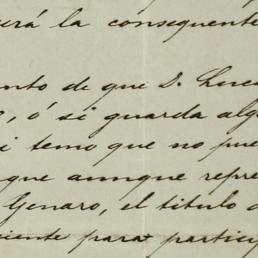 urá la consequente
nto de que D. Luc
, ó si guarda alg
i temo que no pue
que aunque repre
Genaro, el titulo d
ciente para partic